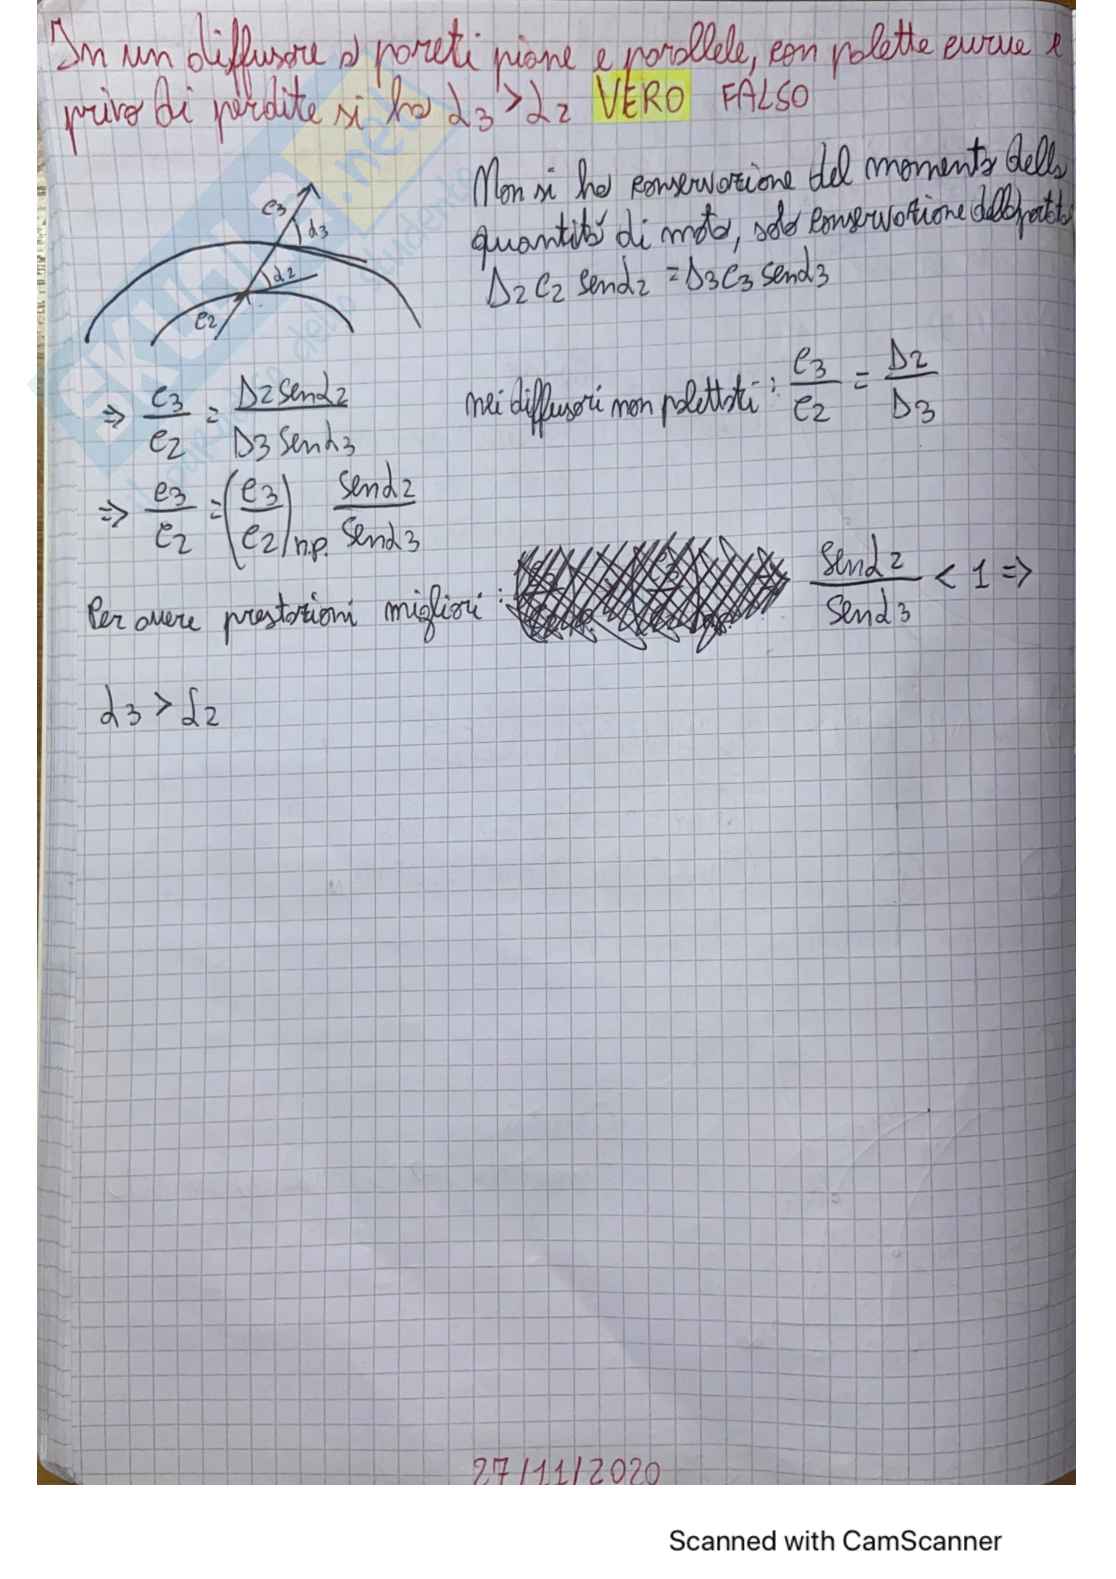 In un diffusore a pareti piane e parallele, con palette curve e
privo di perdite si ha α3 > α2 VERO FALSO
Non si ha conservazione del momento della
quantità di moto, solo conservazione della portata
D2 c2 senα2 = D3 c3 senα3
c3
α3
α2
c2
⇒ c3/c2 = D2 senα2 / D3 senα3
nei diffusori non palettati: c3/c2 = D2/D3
⇒ c3/c2 = (c3/c2)n.p. senα2/senα3
Per avere prestazioni migliori: senα2/senα3 < 1 ⇒
α3 > α2
27/11/2020
Scanned with CamScanner